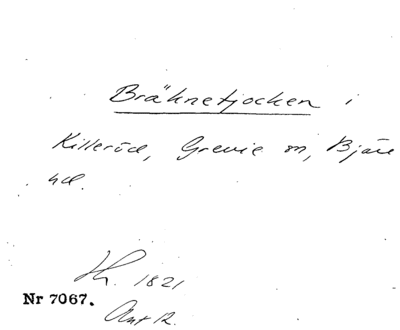 Bräknetjocken i
Killeröd, Grevie sn, Bjäre
hd.
Lh. 1821
Nr 7067.
Ant 12.